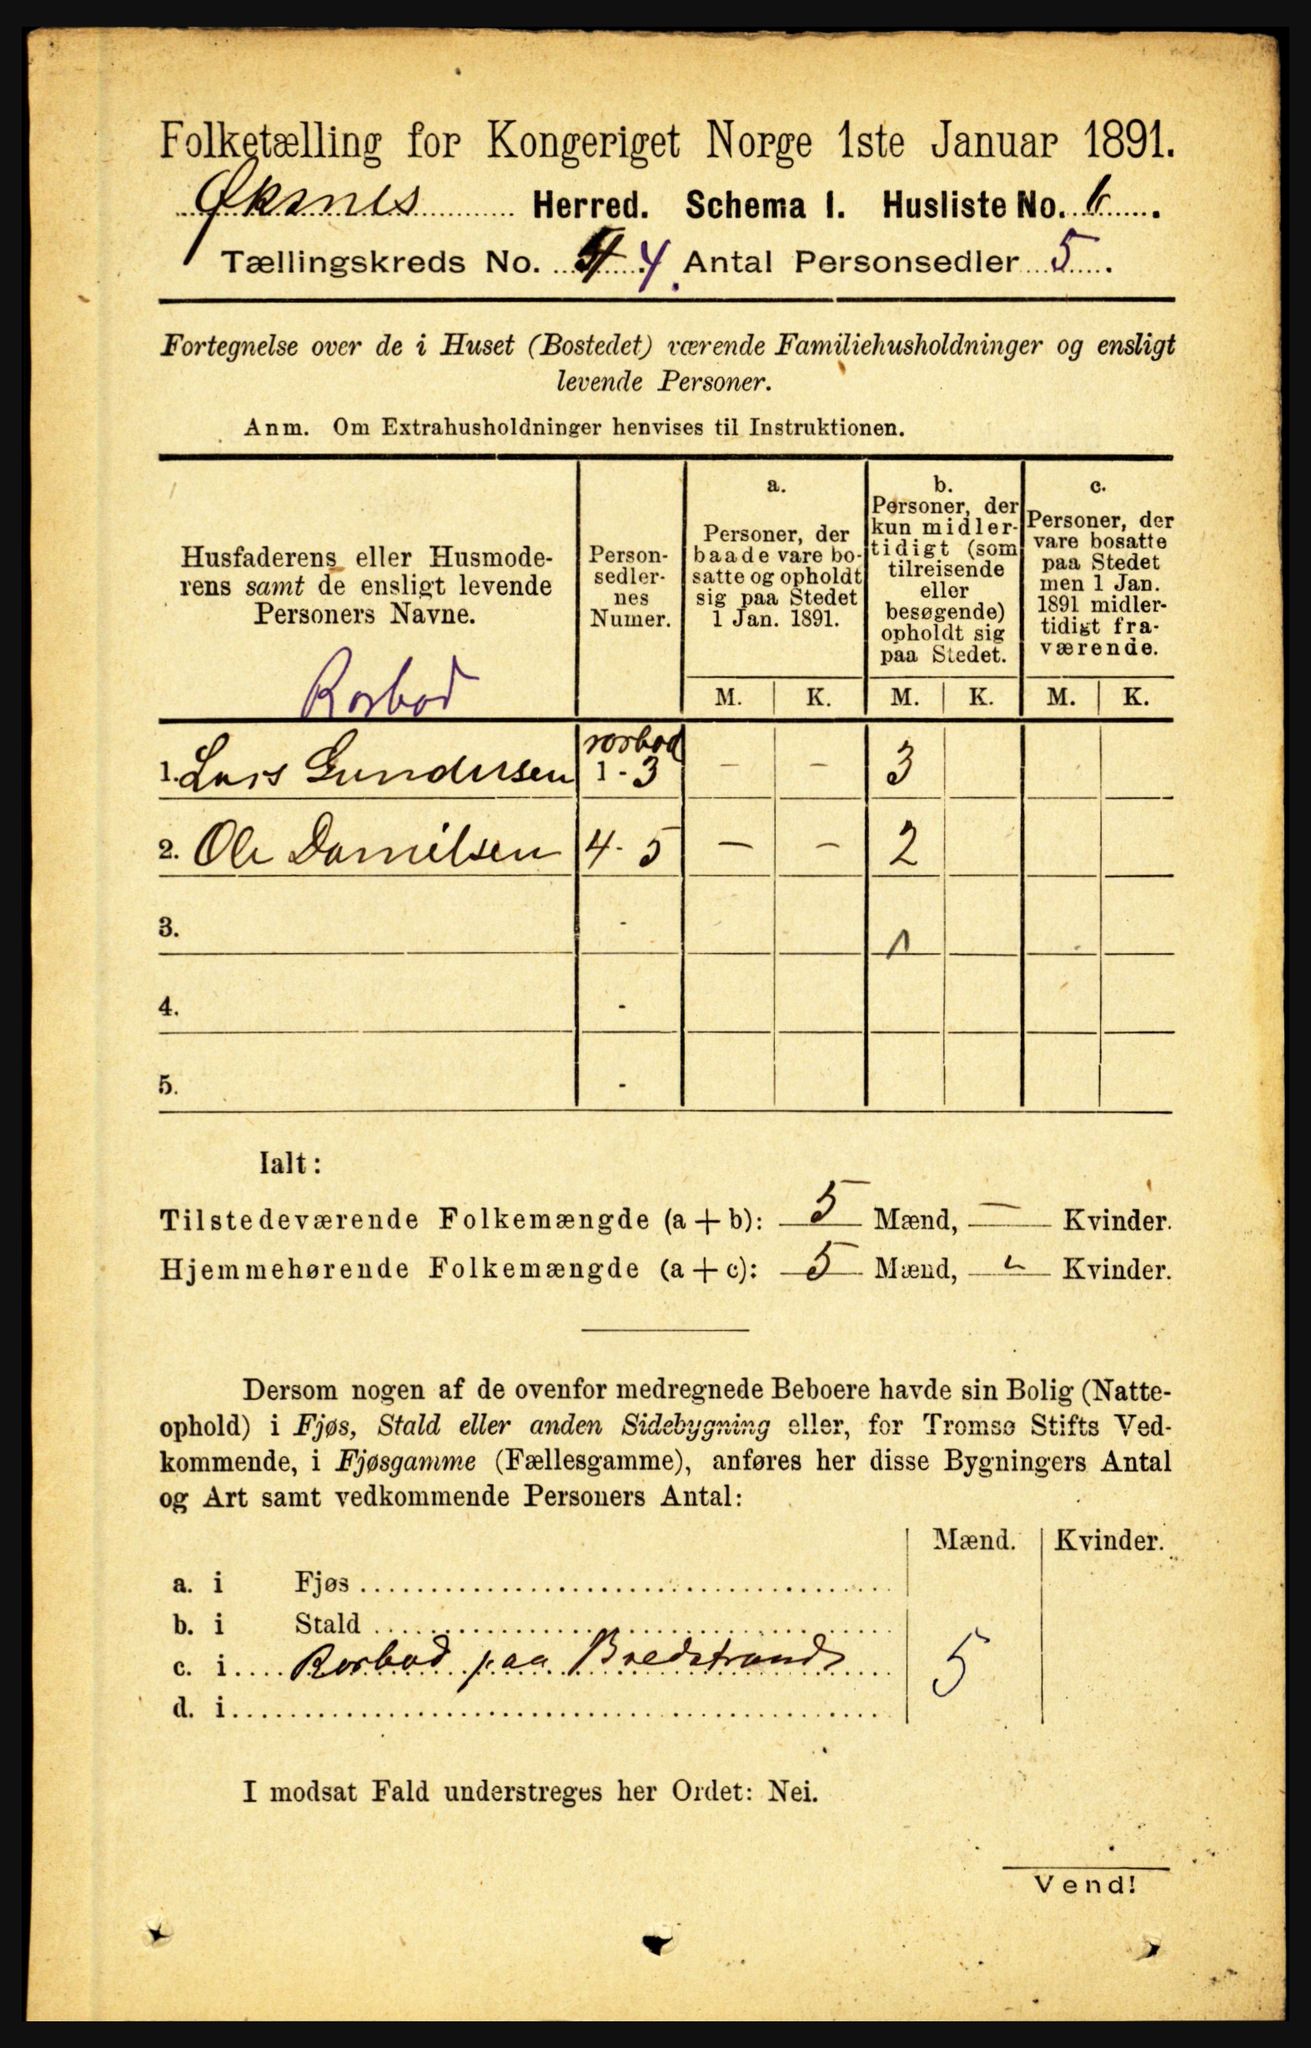 Folketælling for Kongeriget Norge 1ste Januar 1891.
Øksnes Herred. Schema I. Husliste No. 6.
Tællingskreds No. 4. Antal Personsedler 5.
Fortegnelse over de i Huset (Bostedet) værende Familiehusholdninger og ensligt
levende Personer.
Anm. Om Extrahusholdninger henvises til Instruktionen.
Husfaderens eller Husmode-
rens samt de ensligt levende
Personers Navne.
Rorbod
Person-
sedler-
nes
Numer.
a.
Personer, der
baade vare bo-
satte og opholdt
sig paa Stedet
1 Jan. 1891.
b.
Personer, der
kun midler-
tidigt (som
tilreisende
eller
besøgende)
opholdt sig
paa Stedet.
c.
Personer, der
vare bosatte
paa Stedet
men 1 Jan.
1891 midler-
tidigt fra-
værende.
M. K. M. K. M. K.
rorbod
1. Lars Gundersen 1 - 3 - - 3
2. Ole Danielsen 4 - 5 - - 2
3. -
4. -
5. -
Ialt:
Tilstedeværende Folkemængde (a + b): 5 Mænd, — Kvinder.
Hjemmehørende Folkemængde (a + c): 5 Mænd, Kvinder.
Dersom nogen af de ovenfor medregnede Beboere havde sin Bolig (Natte-
ophold) i Fjøs, Stald eller anden Sidebygning eller, for Tromsø Stifts Ved-
kommende, i Fjøsgamme (Fællesgamme), anføres her disse Bygningers Antal
og Art samt vedkommende Personers Antal:
Mænd. Kvinder.
a. i Fjøs
b. i Stald
c. i Rorbod paa Bredstrand 5
d. i
I modsat Fald understreges her Ordet: Nei.
Vend!